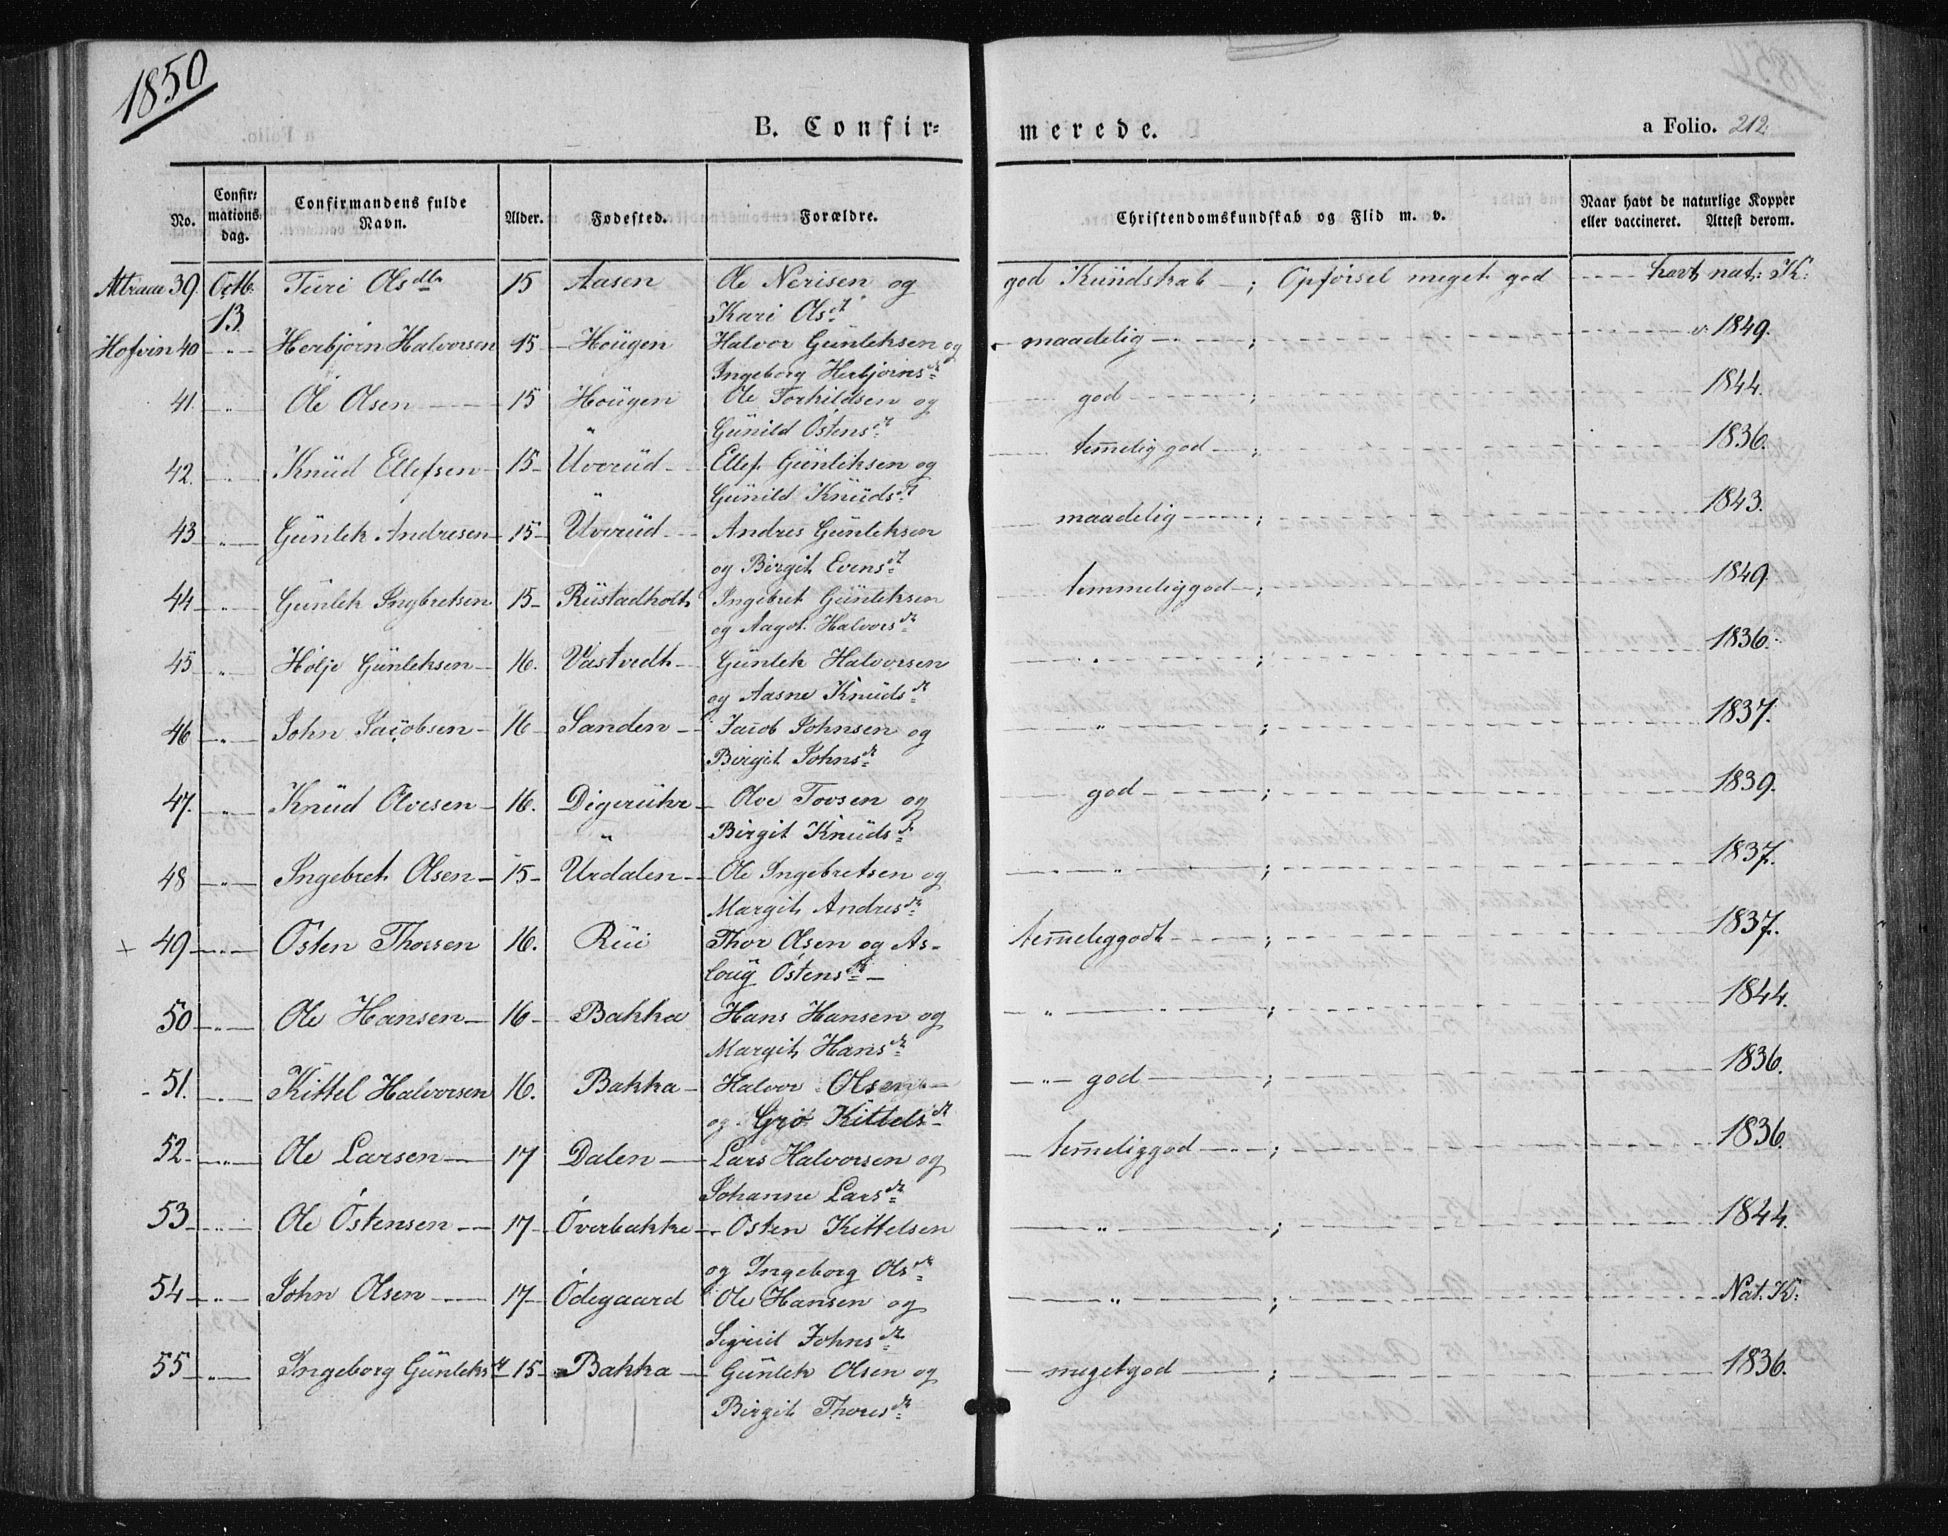 1850
B. Confirmerede.
a Folio. 212.
No. Confirmations dag. Confirmandens fulde Navn. Alder. Fødested. Forældre. Christendomskundskab og Flid m. v. Naar havt de naturlige Kopper eller vaccineret. Attest derom.
Attraae 39. Octb. 13. Turi Olsdtr 15 Aasen Ole Nerisen og god Kundskab ; Opførsel meget god havt nat: K:
Kari Olsdt
Hofvin 40 " Herbjørn Halvorsen 15 Hougen Halvor Gunleksen og maadelig ; v. 1849.
Ingeborg Herbjørnsdt
41. " Ole Olsen 15 Hougen Ole Torkildsen og god ; 1844.
Gunild Östensdt
42. " Knud Ellefsen 15 Uvrud Ellef Gunleksen og temelig god ; 1836.
Gunild Knudsdt
43 " Gunlek Andresen 15 Uvrud Andres Gunleksen maadelig ; 1843.
og Birgit Evensdt
44 " Gunlek Ingbretsen 15 Rustadholt Ingebret Gunleksen temmelig god ; 1849.
og Aagot Halvorsdt
45 " Holje Gunleksen 16. Vastvedt Gunlek Halvorsen " ; 1836.
og Aasne Knudsdt
46 " John Jacobsen 16 Sanden Jacob Johnsen og " ; 1837.
Birgit Johnsdt
47. " Knud Olvesen 16. Digeruhr Olve Tovsen og god ; 1839.
Birgit Knudsdt
48 " Ingebret Olsen 15 Urdalen Ole Ingebretsen og " ; 1837.
Margit Andresdt
+ 49 " Östen Thorsen 16. Rui Thor Olsen og As- temeliggodt ; 1837.
loug Östensdt
50 " Ole Hansen 16 Bakka Hans Hansen og " ; 1844.
Margit Hansdt
51. " Kittel Halvorsen 16. Bakka Halvor Olsen " god ; 1836.
og Gro Kittelsdt
52 " Ole Larsen 17 Dalen Lars Halvorsen og temeliggod ; 1836.
Johanne Larsdt
53 " Ole Östensen 17 Överbakke Osten Kittelsen " ; 1844.
og Ingeborg Olsdt
54 " John Olsen 17 Ödegaard Ole Hansen og " ; Nat. K:
Sigrid Johnsdt
55 " Ingeborg Gunleksdt 15 Bakka Gunlek Olsen og megetgod ; 1836.
Birgit Thoresdt